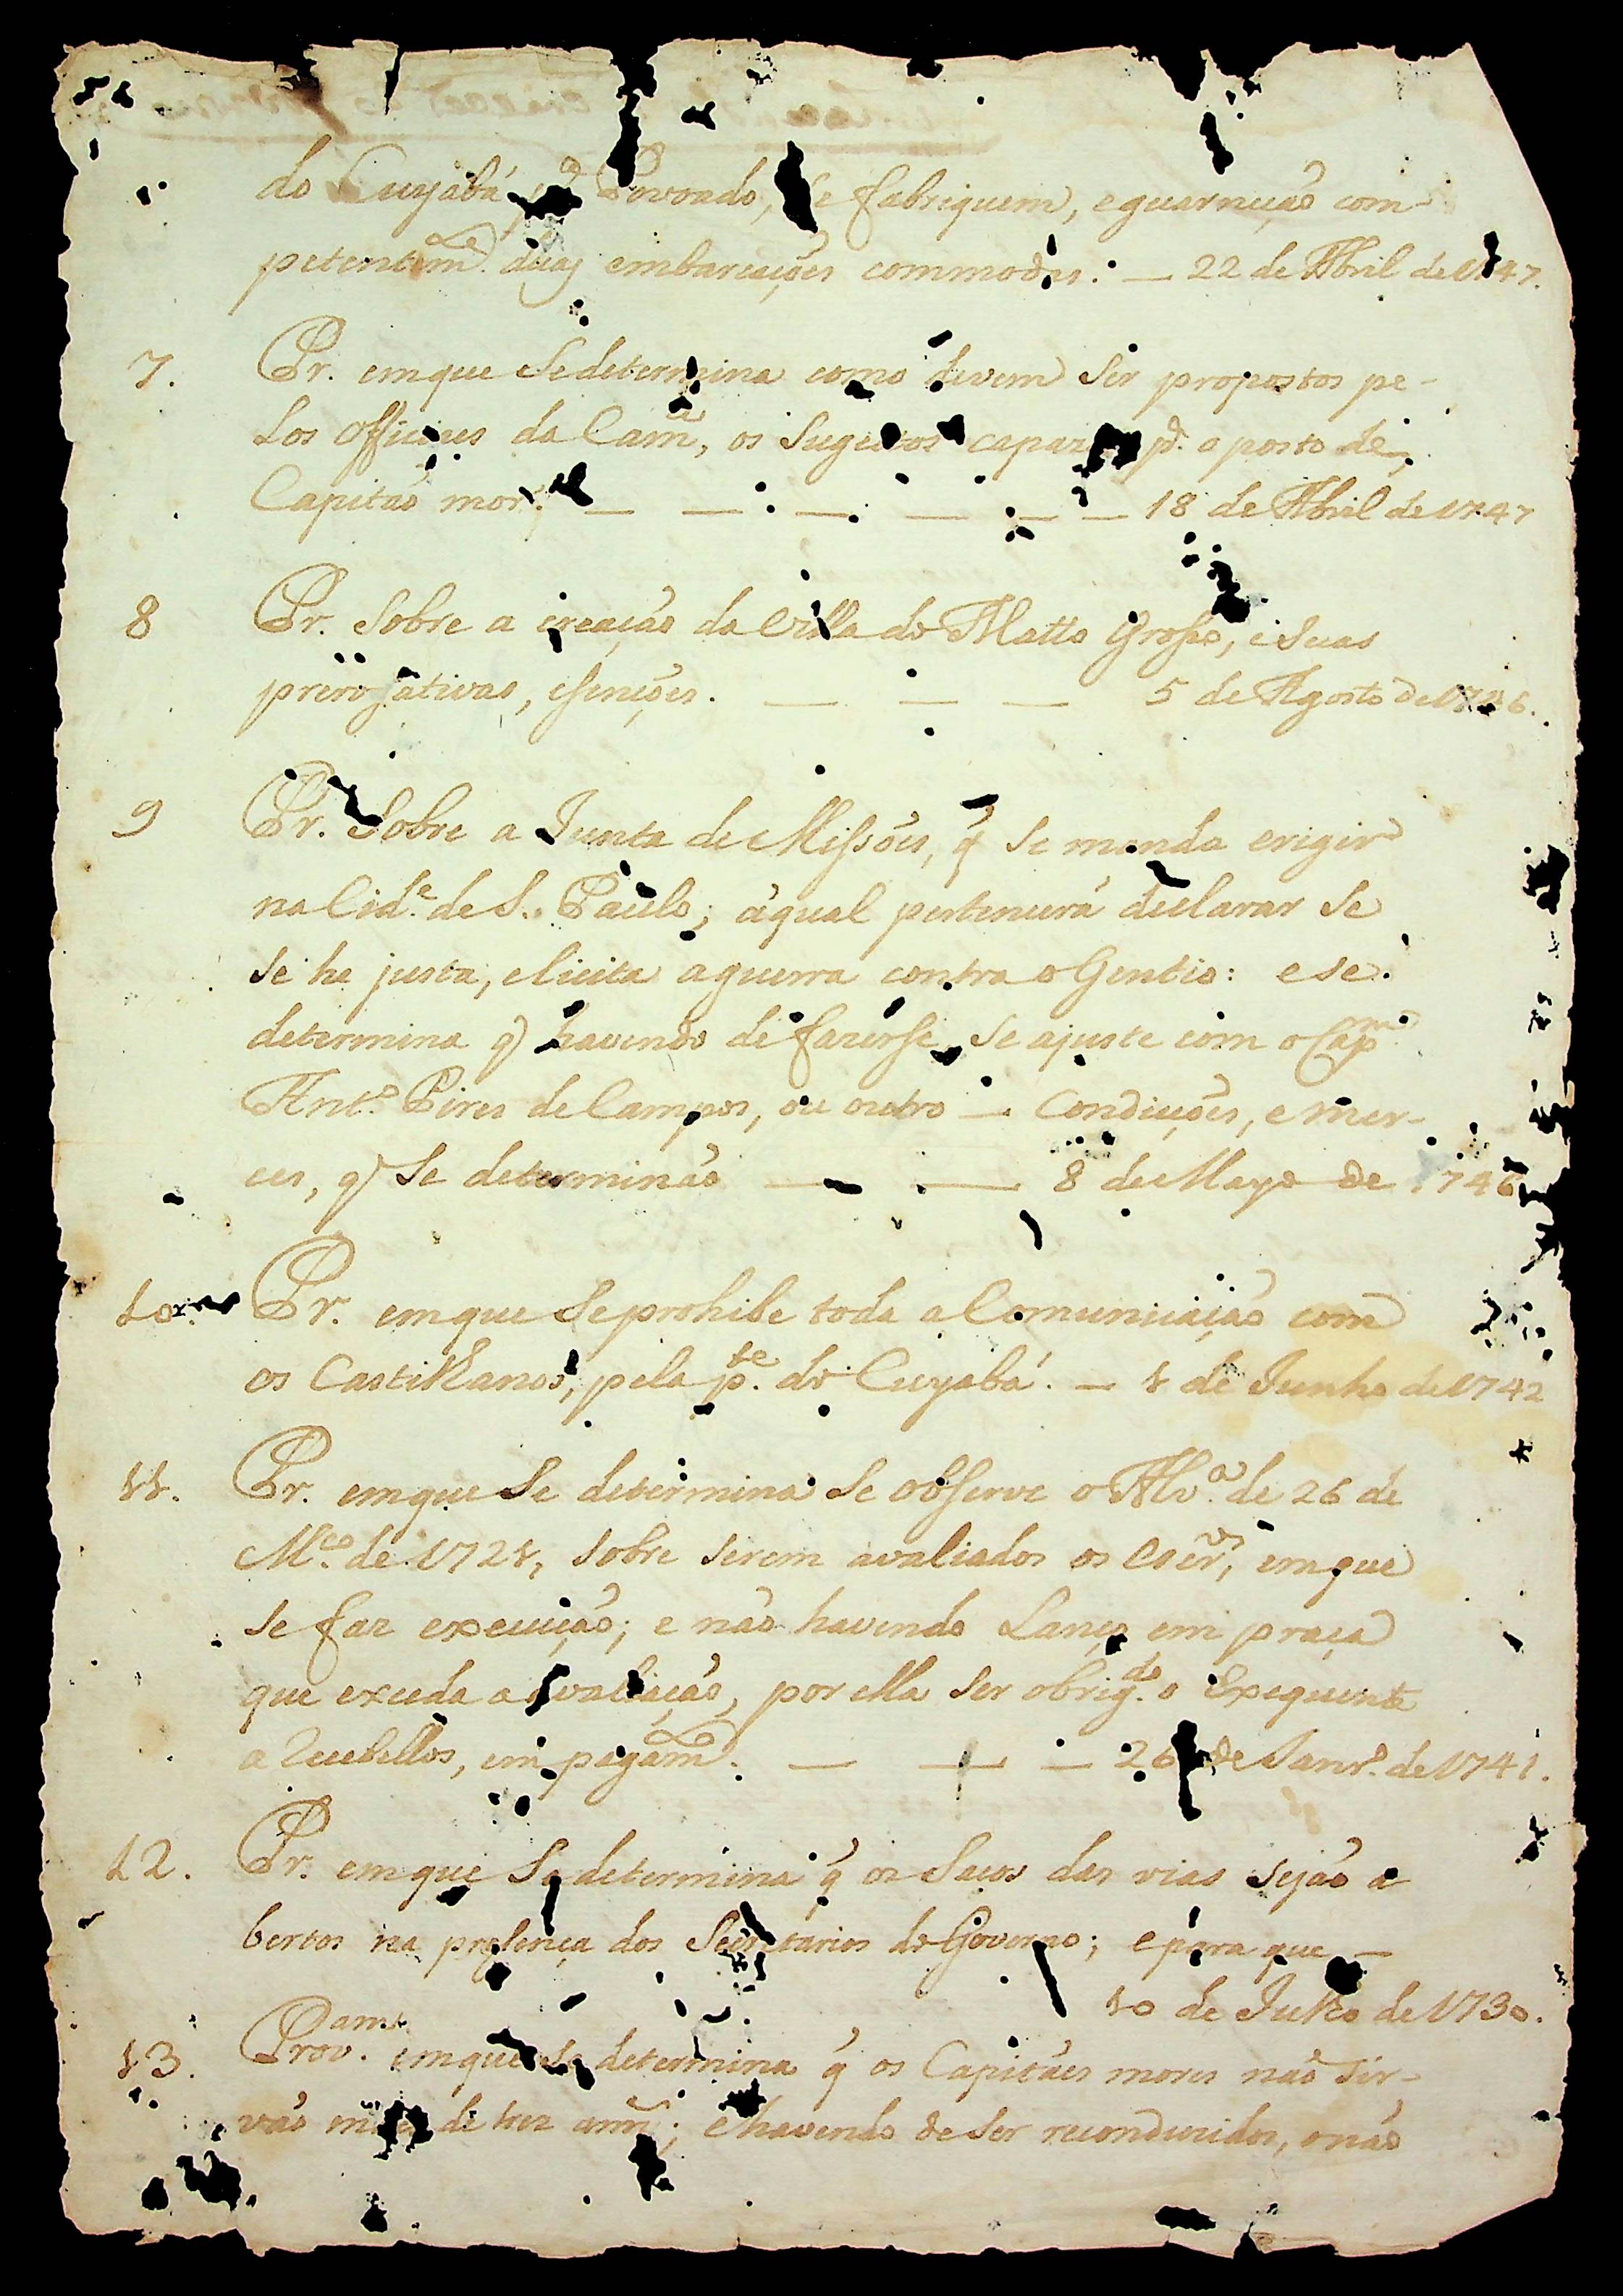 do Cuyabá pa. Povoado, se fabriquem, e guarnição com-
petentemte. duas embarcações commodas: — 22 de Abril de 1747.
7. Pr. emque Sedetermina como devem Ser propostos pe-
Los officiaes da Camra, os Sugeitos capazes pa. o posto de
Capitão mor. — — — — — — 18 de Abril de 1747
8 Pr. Sobre a creação da Villa do Matto Grosso, e Suas
prerogativas, esenções. — — — 5 de Agosto de 1746.
9 Pr. Sobre a Junta de Missões, q̃ Se manda erigir
na Cide. de S. Paulo; áqual pertencerá declarar Se
Se he justa, elicita aguerra contra o Gentio: e se
determina q̃ havendo de fazerse, Se ajuste com o Capm.
Anto. Pires de Campos, ou outro — Condições, e mer-
ces, q̃ Se determinão — — 8 de Mayo de 1746
10. Pr. emque Seprohibe toda a Comunicação com
os Castilhanos, pela pte. do Cuyabá. — 1 de Junho de 1742
11. Pr. emque Se determina Se observe o Alva. de 26 de
Mço. de 1721, Sobre Serem avaliados os escros, emque
Se faz execução; e não havendo Lanço em praça
que exceda a avaliação, por ella Ser obrigdo. o Exequente
a Recebellos, em pagamto. — — — 26 de Janro. de 1741.
12. Pr. emque Se determina q̃ os Sacos das vias Sejão a
bertos na presença dos Secretarios do Governo; e para que —
10 de Julho de 1730.
13. Provam. emque Se determina q̃ os Capitães mores não Sir-
vão mais de trez annos; e havendo de Ser reconduzidos, o não